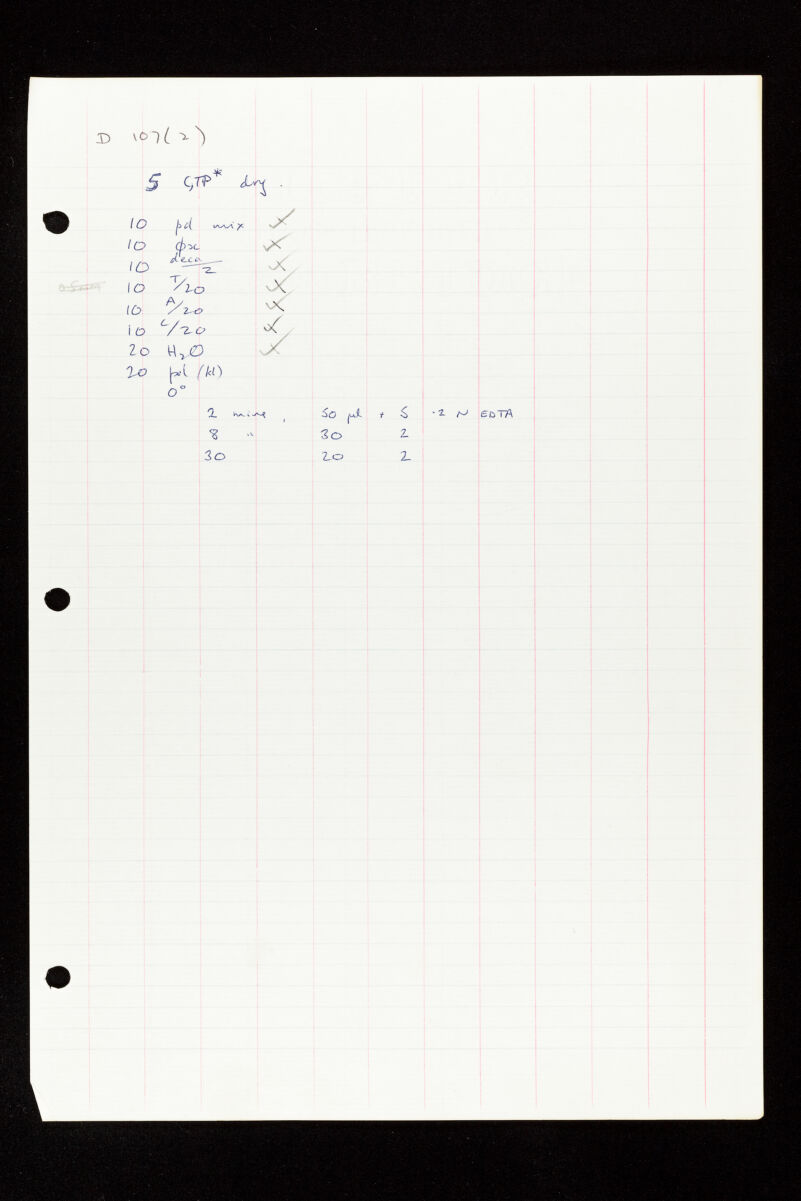 D 107(2)
5 GTP* dry.
10 pol mix
10 φx
10 deca/2
10 T/20
10 A/20
10 C/20
20 H₂O
20 pol (kl)
0°
2 mins, 50 μl + 5 ·2 N EDTA
8 " 30 2
30 20 2